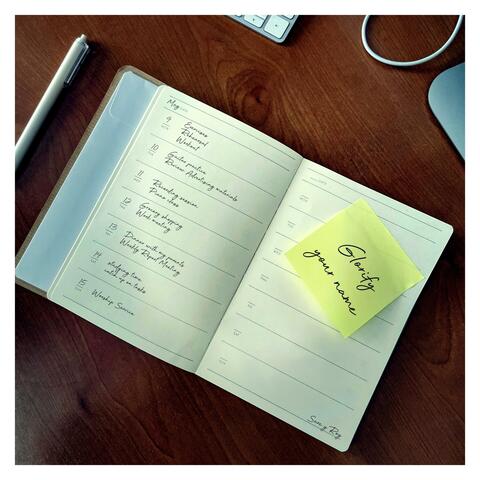 May
9
Exercises
Rehearsal
Workout
10
Guitar practice
Review Advertising materials
11
Recording session
Piano class
12
Grocery shopping
Week meeting
13
Dinner with my parents
Weekly Report Meeting
14
studying time
catch up on tasks
15
Worship Service
Glorify
your name